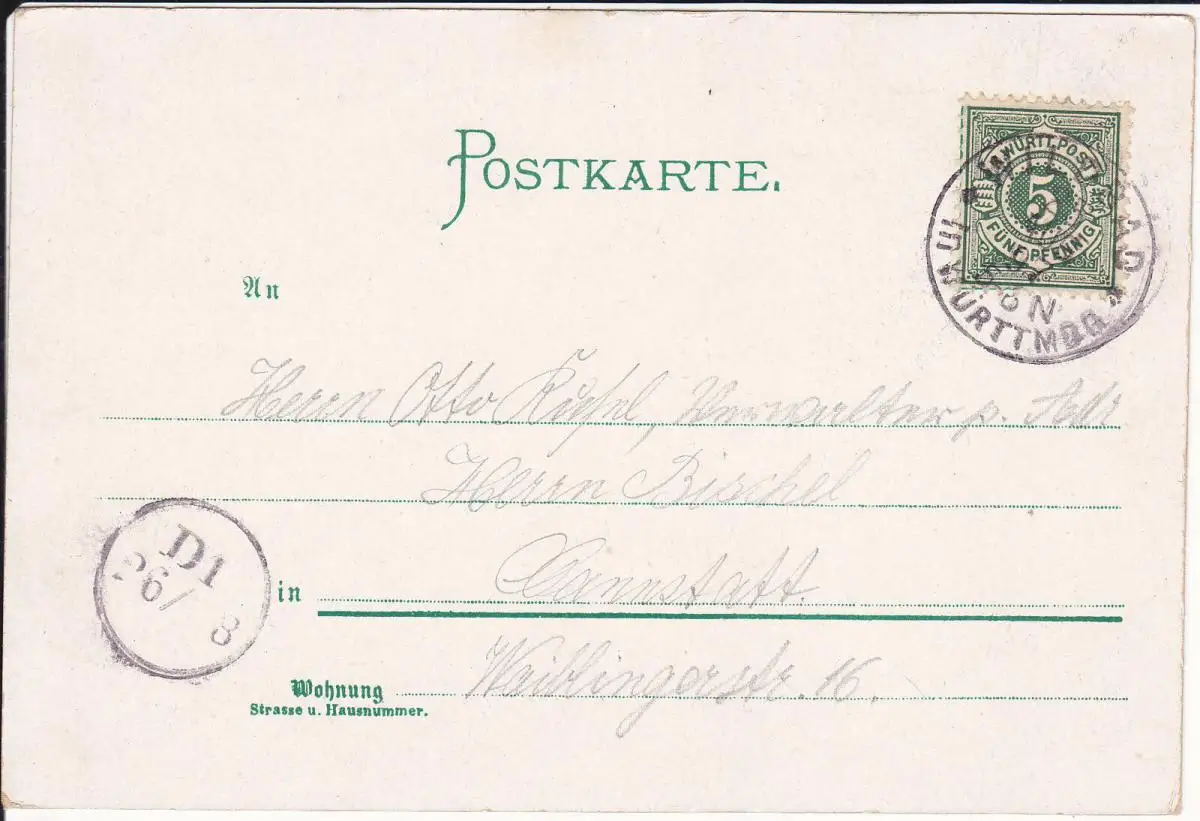 POSTKARTE.
K.WÜRTT.POST
5
FÜNF PFENNIG
WÜRTTMBG
8 N
An
Herrn Otto Verwalter p. Adr
Herrn Bischel
D1
26/8
in Cannstatt.
Wohnung Waiblingerstr. 16.
Strasse u. Hausnummer.